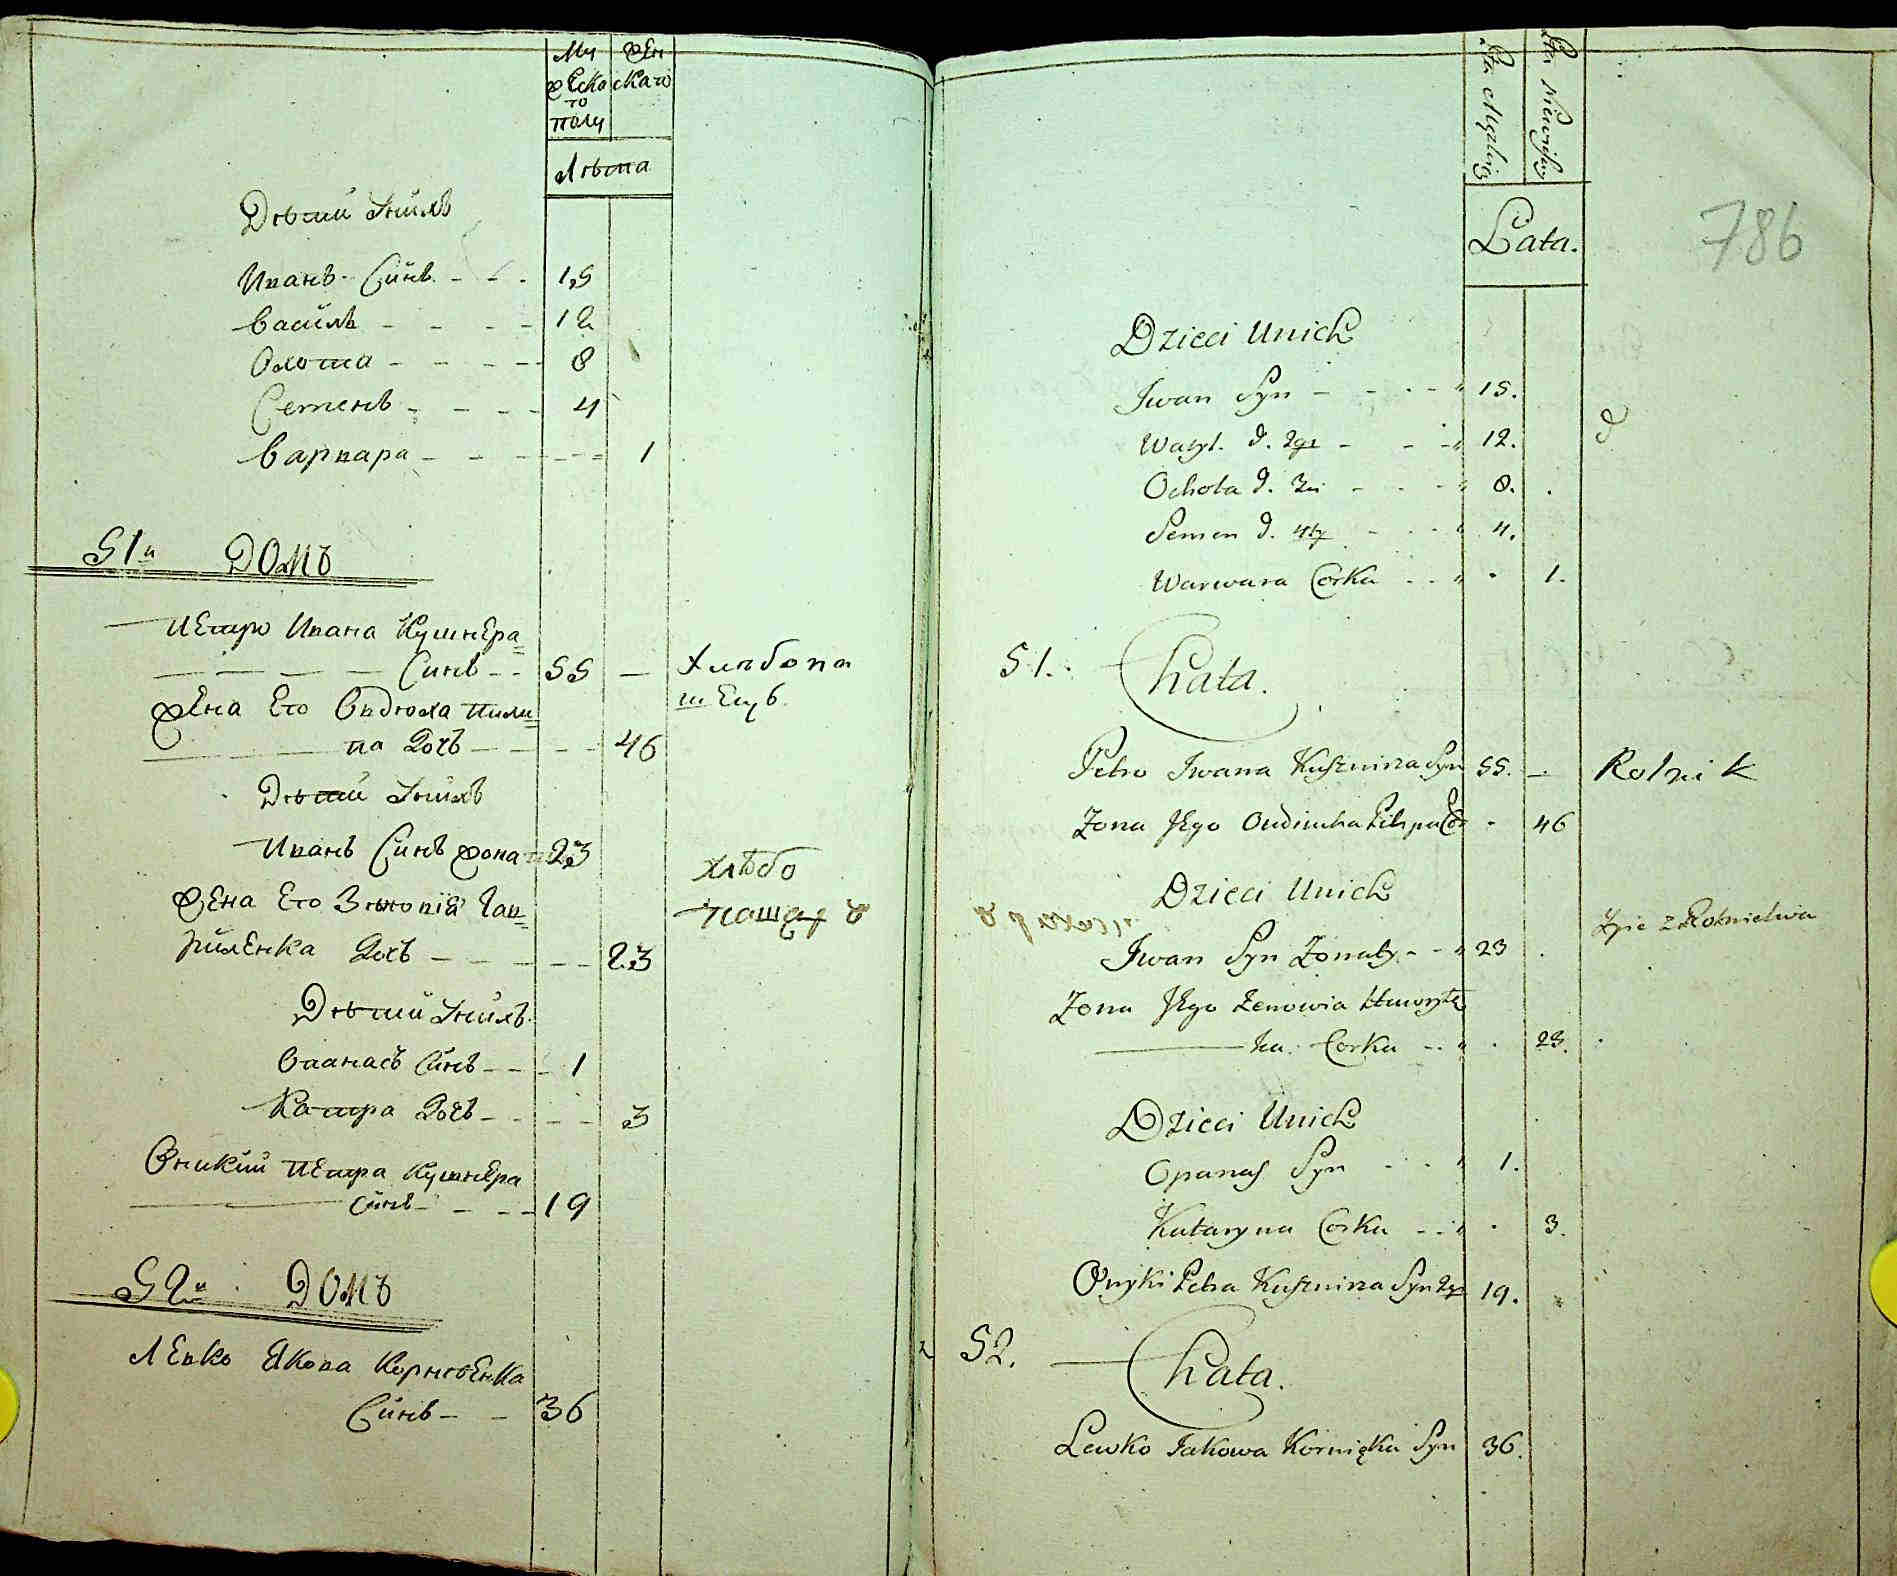 Му
жеско
го
полу
Жен
скаго
Лѣта
Дѣти Ѵнихъ
Иванъ Синъ - - - 15
Василь - - - - 12
Охота - - - - 8
Семенъ - - - - 4
Варвара - - - - - - 1
51й ДОМЪ
Петро Ивана Кушнѣра
Синъ - - 55 —
Хлѣбопа
шецъ
Жена Его Овдюха Пили
па Дочь - - - - 46
Дѣти Ѵнихъ
Иванъ Синъ жона 23
хлѣбо
пашаръ
Жена Его Зѣновія Гав
риленка Дочь - - - - 23
Дѣти Ѵнихъ
Опанасъ Синъ - - - 1
Катра Дочь - - - - 3
Оникій Петра Кушнѣра
Синъ - - - - 19
52й ДОМЪ
Левко Якова Корнѣенка
Синъ - - 36
Lata Męzkiej
Lata Niewieściey
Lata.
786
Dzieci Unich
Iwan Syn - - - - 15.
Wasyl. d. 2gi - - - 12.
Ochota d. 3ci - - - 8.
Semen d. 4ty - - - 4.
Warwara Corka - - - 1.
51. Chata.
Petro Iwana Kusznirza Syn 55. — Rolnik
Zona Jego Owdiucha Pilipa Cor - 46
Dzieci Unich
Iwan Syn Zonaty - - 23
Zyie z Rolnictwa
Zona Jego Zenowia Hawryłe
ka. Corka - - - 23.
Dzieci Unich
Opanas Syn - - - 1.
Kataryna Corka - - - 3.
Onyki Petra Kusznirza Syn 2gi 19.
52. Chata.
Lewko Jakowa Kornięka Syn 36.